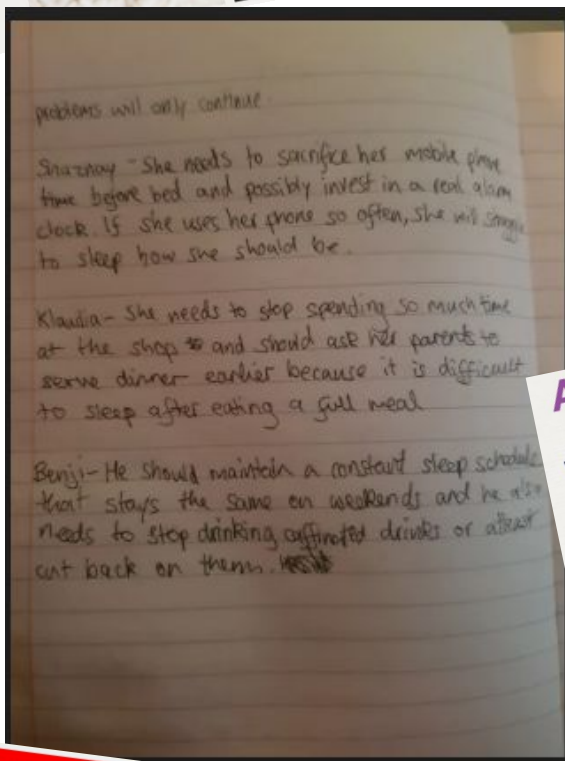 problems will only continue.
Shaznay - She needs to sacrifice her mobile phone
time before bed and possibly invest in a real alarm
clock. If she uses her phone so often, she will struggle
to sleep how she should be.
Klaudia - She needs to stop spending so much time
at the shop and should ask her parents to
serve dinner earlier because it is difficult
to sleep after eating a full meal
Benji - He should maintain a constant sleep schedule
that stays the same on weekends and he also
needs to stop drinking caffinated drinks or atleast
cut back on them.
A